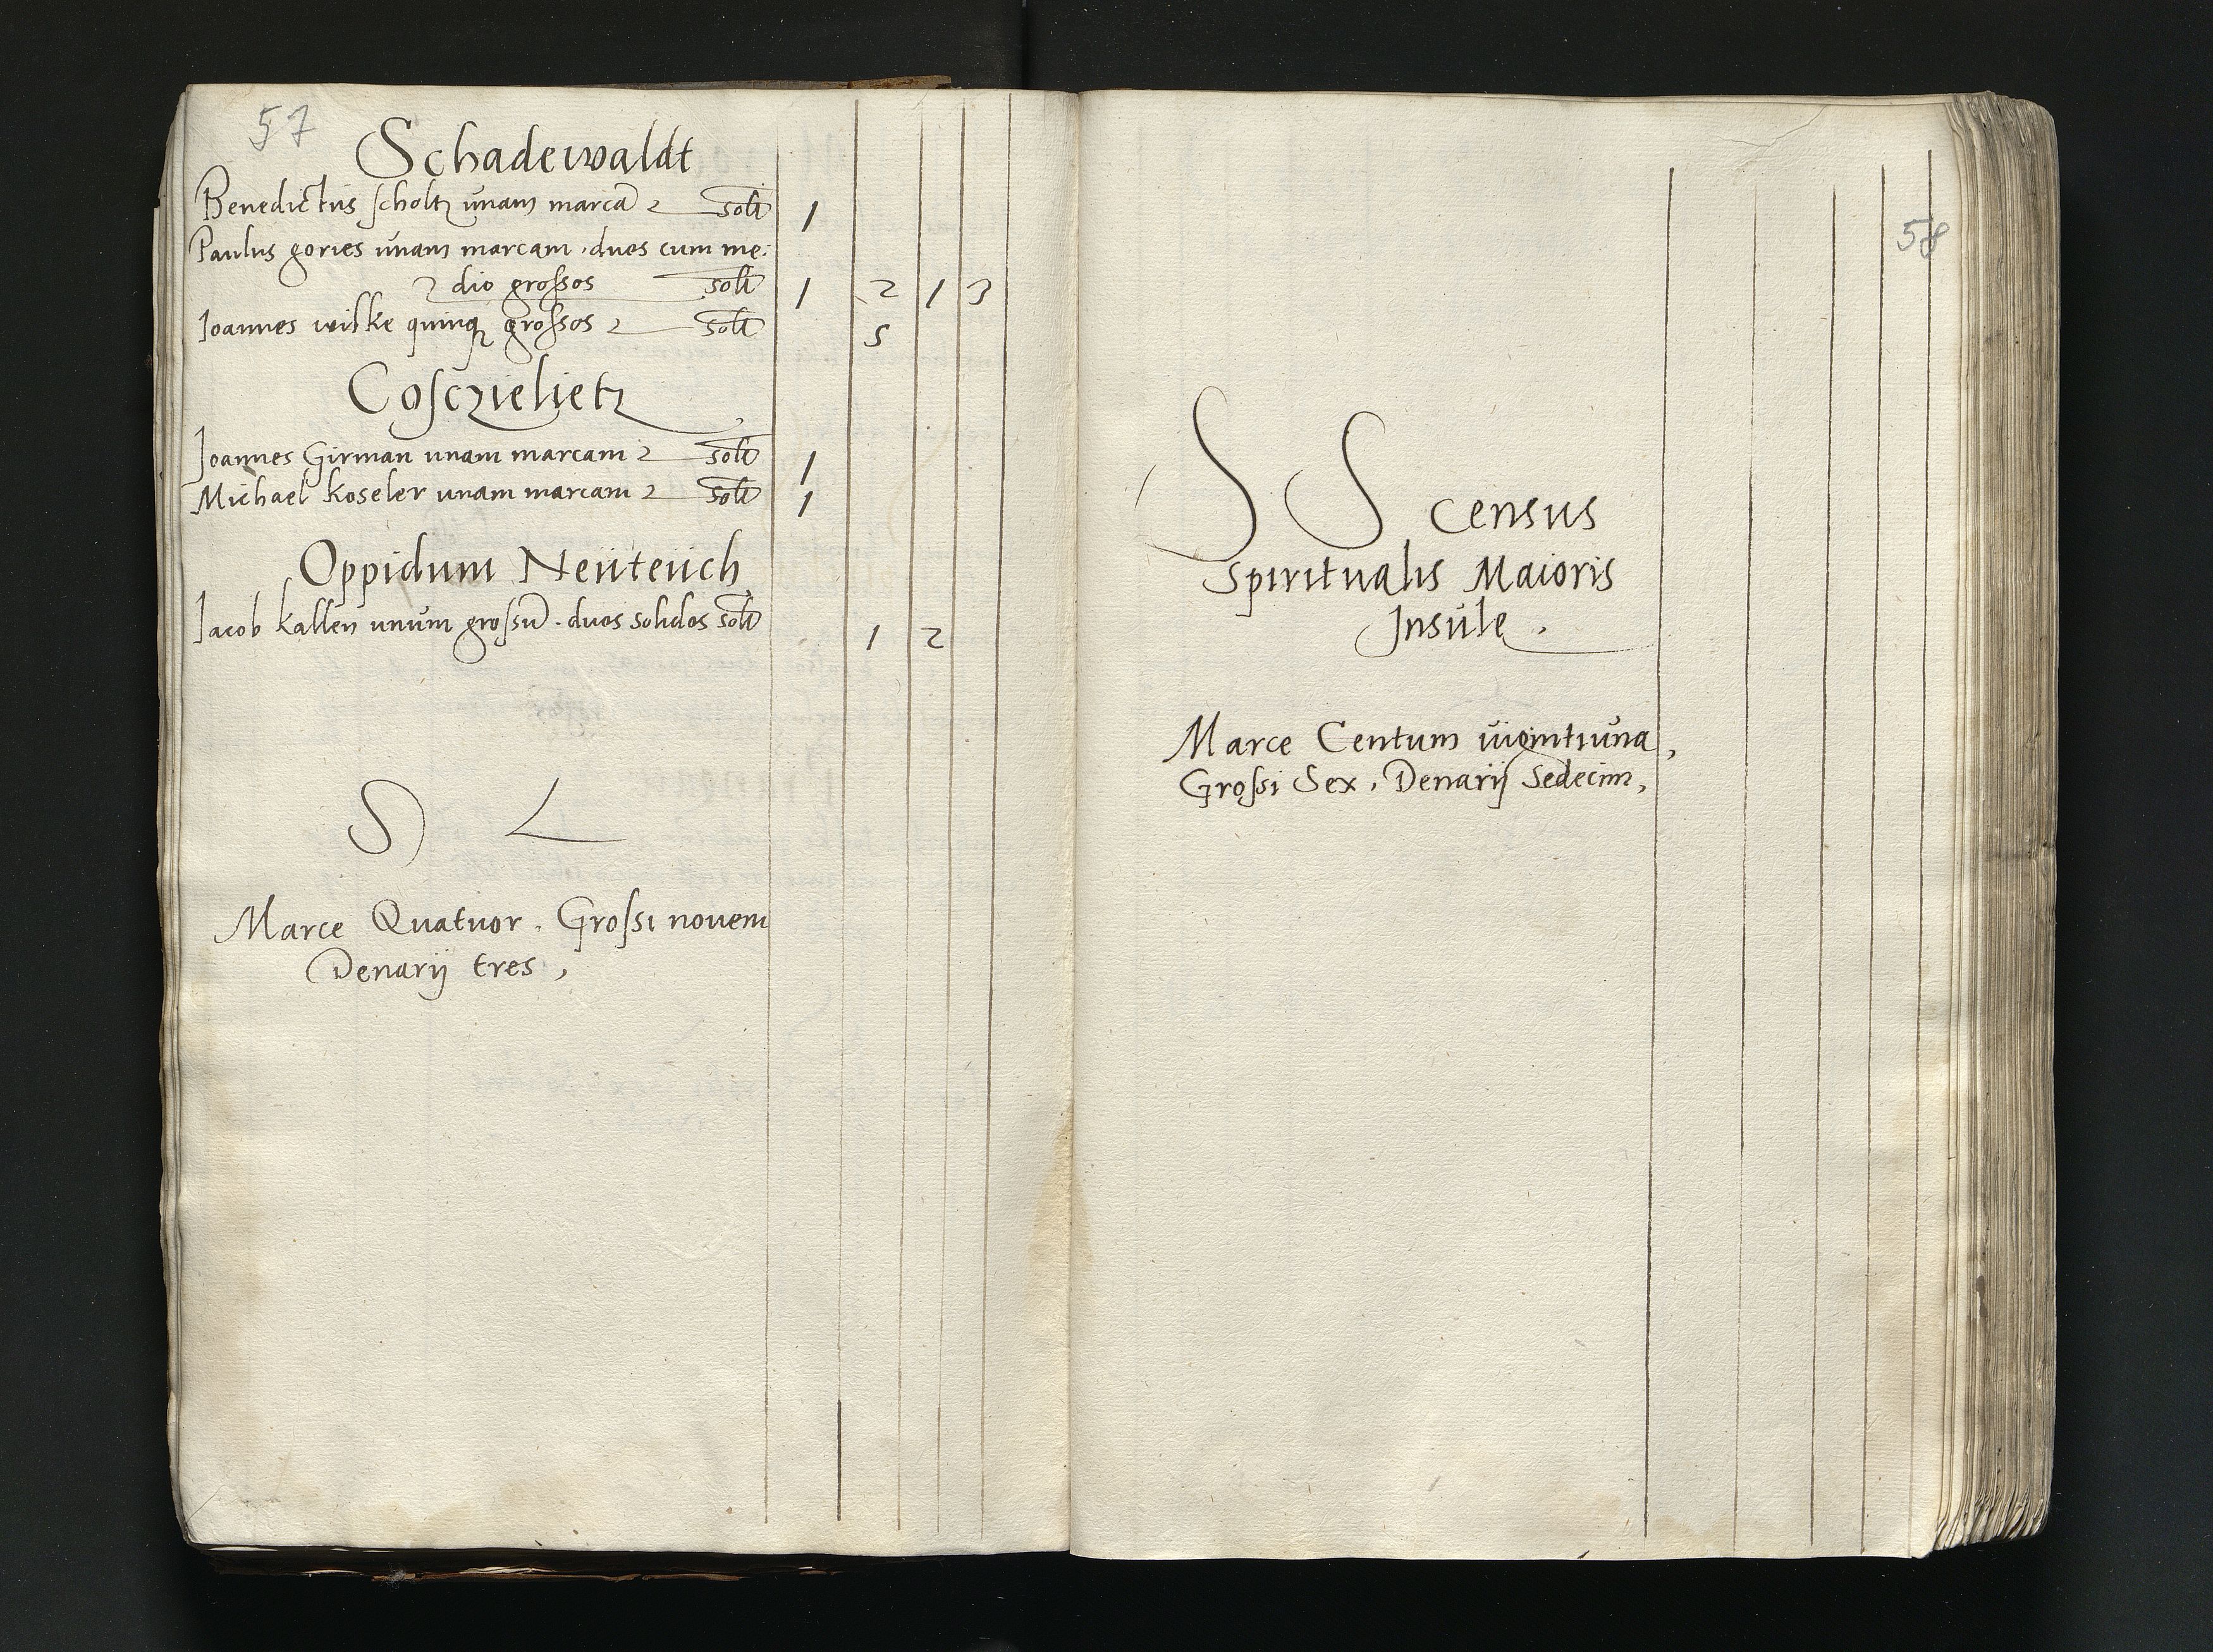 57
Schadewaldt
Benedictus scholtz unam marcā solt 1
Paulus gories unam marcam . duos cum me:
dio grossos solt 1 2 1 3
Ioannes wilke quinqꝫ grossos solt 5
Cosczielietz
Joannes Girman unam marcam solt 1
Michael Koseler unam marcam solt 1
Oppidum Neüteüch
Jacob kallen unum grossū . duos solidos solt 1 2
S L
Marce Quatuor . Grossi nouem
Denarij tres ,
58
S S census
Spiritualis Maioris
Insule .
Marce Centum uigintiuna ,
Grossi Sex , Denarij Sedecim ,